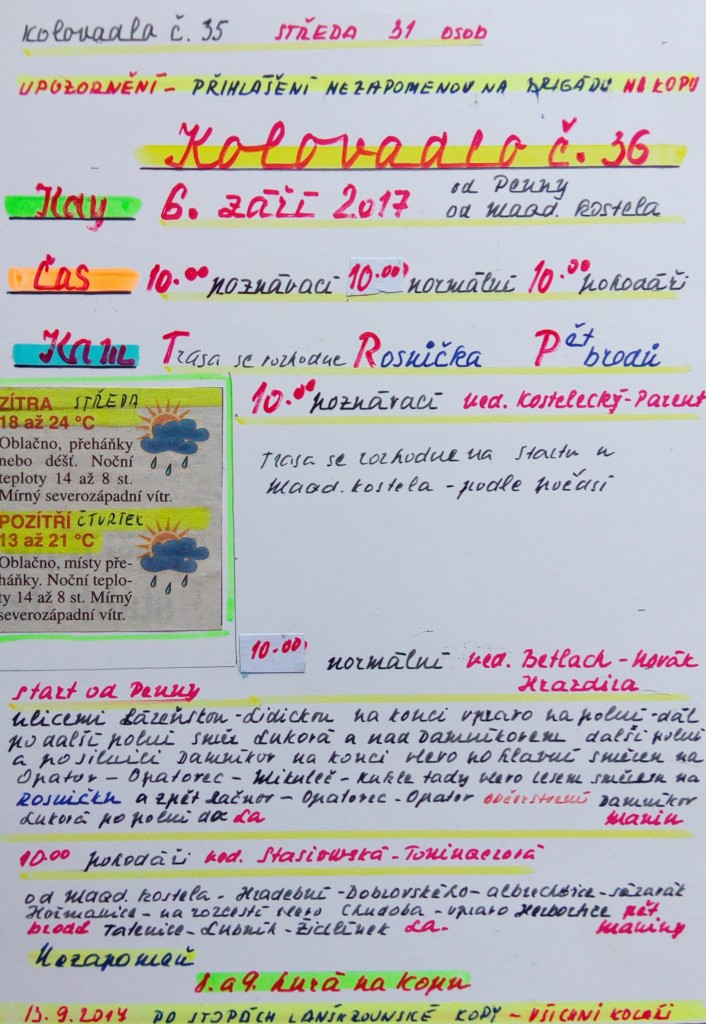 Kolovadla č. 35 STŘEDA 31 OSOB
UPOZORNĚNÍ - PŘIHLAŠENÍ NEZAPOMENOU NA BRIGÁDU NA KOPU
Kolovadlo č. 36
Kdy 6. září 2017 od Penny
od Maad. kostela
Čas 10.00 poznávací 10.00 normální 10.00 pohodáři
Kam Trasa se rozhodne Rosnička Pět brodů
ZÍTRA STŘEDA
18 až 24 °C
Oblačno, přeháňky
nebo déšť. Noční
teploty 14 až 8 st.
Mírný severozápadní vítr.
POZÍTŘÍ ČTVRTEK
13 až 21 °C
Oblačno, místy pře-
háňky. Noční teplo-
ty 14 až 8 st. Mírný
severozápadní vítr.
10.00 poznávací ved. Kostelecký-Parent
Trasa se rozhodne na startu u
Maad. kostela - podle počasí
10.00 normální ved. Betlach - Novák
Hrazdira
start od Penny
ulicemi Lázeňskou - Lidickou na konci vpravo na polní - dál
po další polní směr Luková a nad Damníkovem další polní
a po silnici Damníkov na konci vlevo po hlavní směrem na
Opatov - Opatovec - Mikuleč - Kukle tady vlevo lesem směrem na
Rosničku a zpět Lačnov - Opatovec - Opatov občerstvení Damníkov
Luková po polní do La Manin
10.00 pohodáři ved. Stasiowská -
od Maad. kostela - Hradební - Dobrovského - Albrechtice - Sázavák
Heřmanice - na rozcestí vlevo Chudoba - vpravo Herbortice pět
brodů Tatenice - Lubník - Židlínek La. Maniny
Nezapomeň
8. a 9. hurá na Kopu
13.9.2017 PO STOPÁCH LANŠKROUNSKÉ KOPY - VŠICHNI KOLAŘI